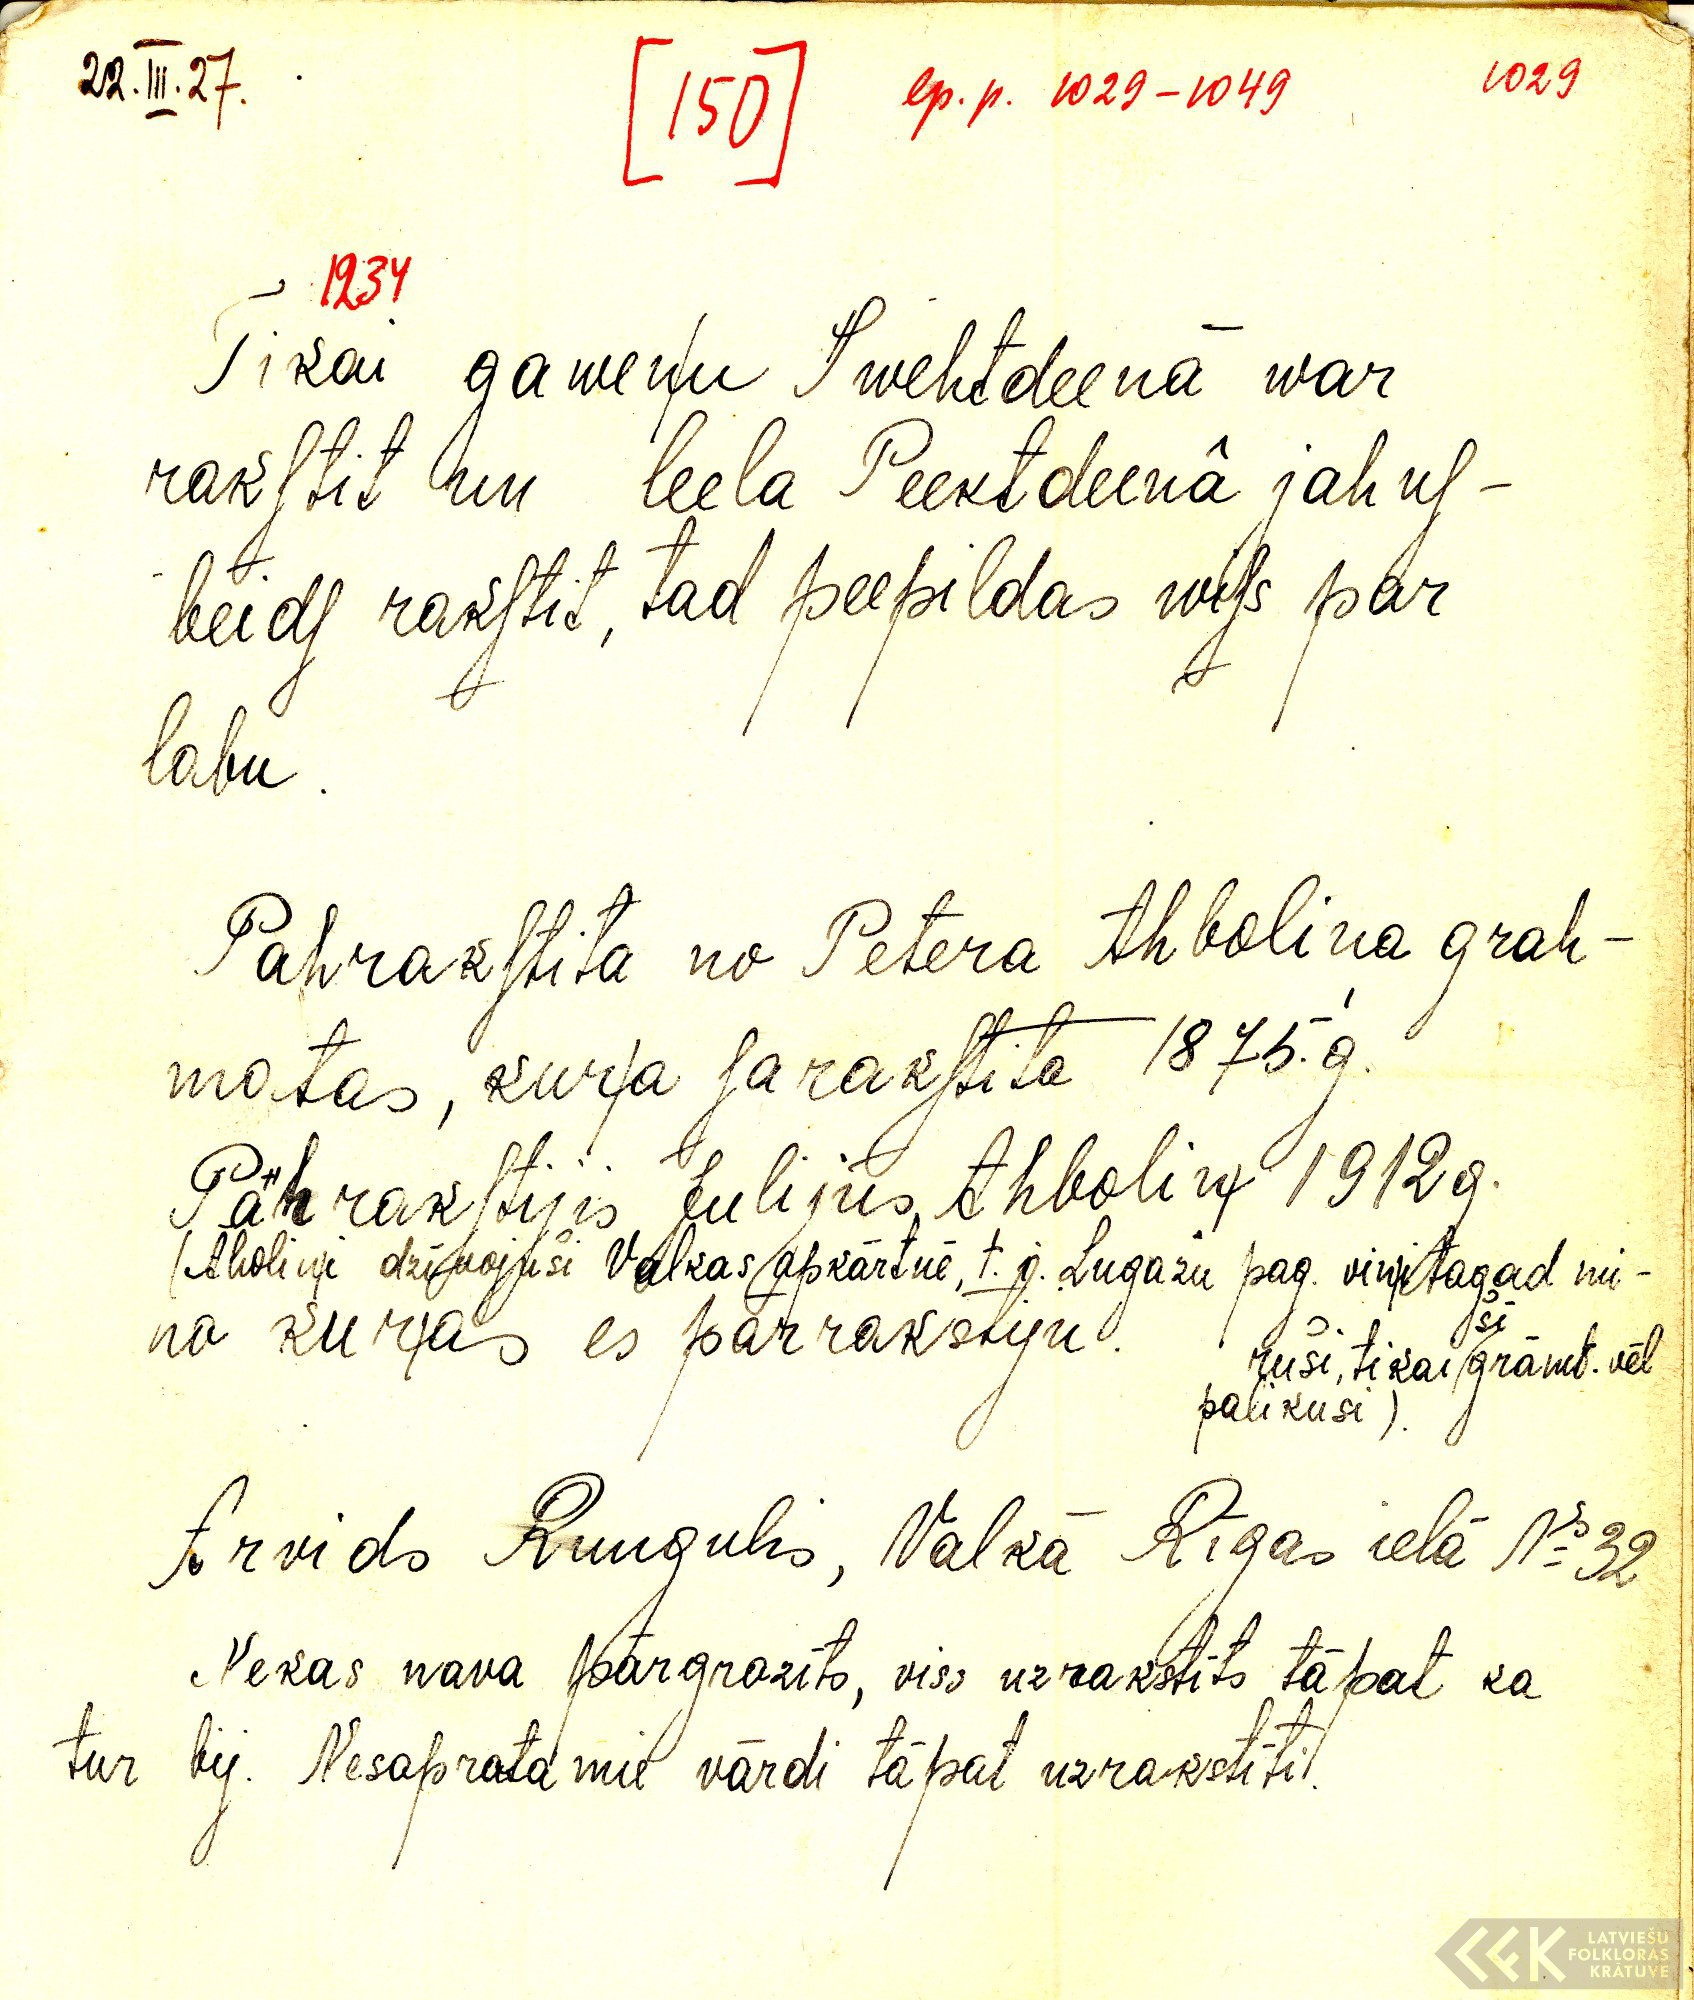 22.III.27.
[150]
lp. p. 1029-1049
1029
1234
Tikai gaweņu Swehtdeenā war
rakſtit un leela Peektdeenâ jahuſ-
beidſ rakſtit, tad peepildas wiſs par
labu.
Pahrakſtita no Petera Ahbolina grah-
matas, kuŗa ſarakſtita 1875. g.
Pahrakſtijis Julijus Ahboliņ 1912 g.
(Aboliņi dzīvojuši Valkas apkārtnē, t. j. Lugažu pag. viņi tagad mi-
no kuŗas es pārrakstiju.
ruši, tikai ši grāmt. vēl
palikusi).
Arvids Rungulis, Valkā Rīgas ielā № 32
Nekas nava pārgrozīts, viss uzrakstīts tāpat ka
tur bij. Nesaprotamie vārdi tāpat uzrakstīti.
LATVIEŠU
FOLKLORAS
KRĀTUVE